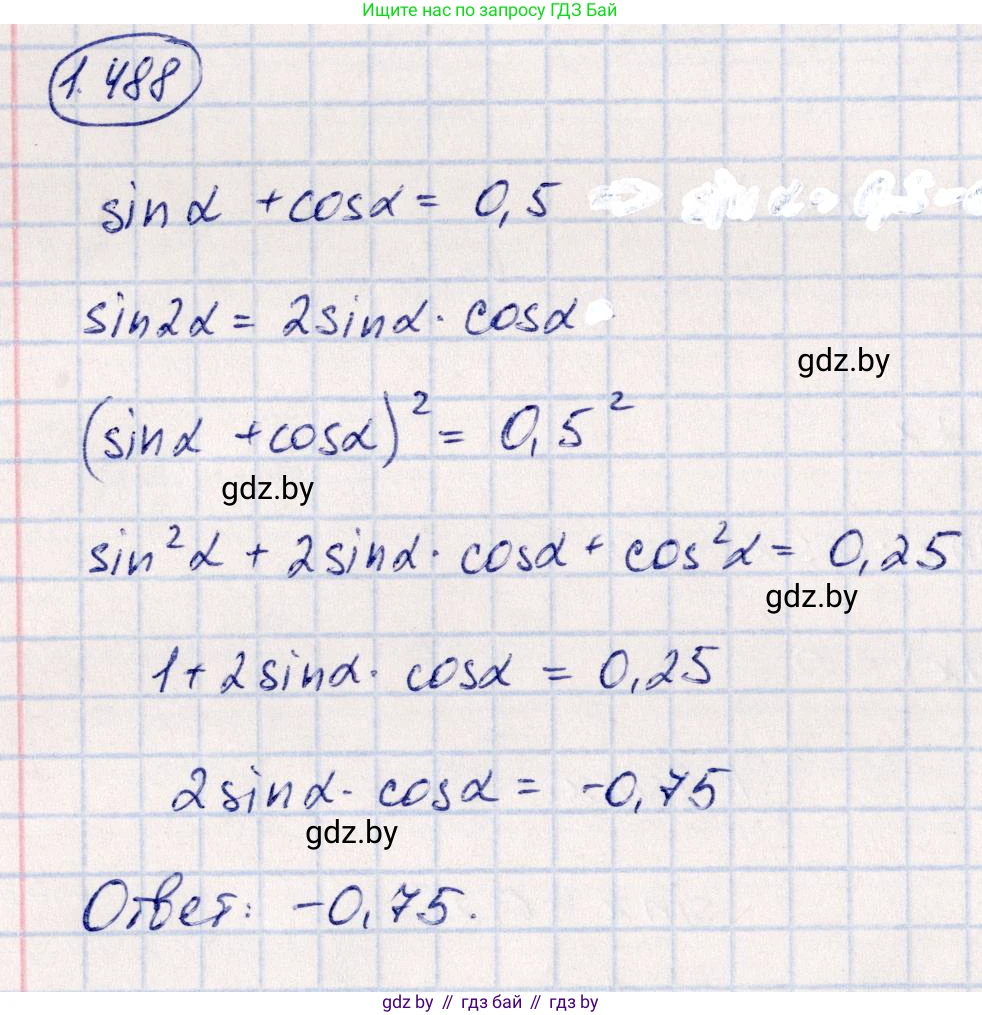 Ищите нас по запросу ГДЗ Бай
1.488
sinα + cosα = 0,5
sin2α = 2sinα · cosα
gdz.by
(sinα + cosα)² = 0,5²
gdz.by
sin²α + 2sinα · cosα + cos²α = 0,25
gdz.by
1 + 2sinα · cosα = 0,25
2sinα · cosα = -0,75
gdz.by
Ответ: -0,75.
gdz.by // гдз бай // гдз by